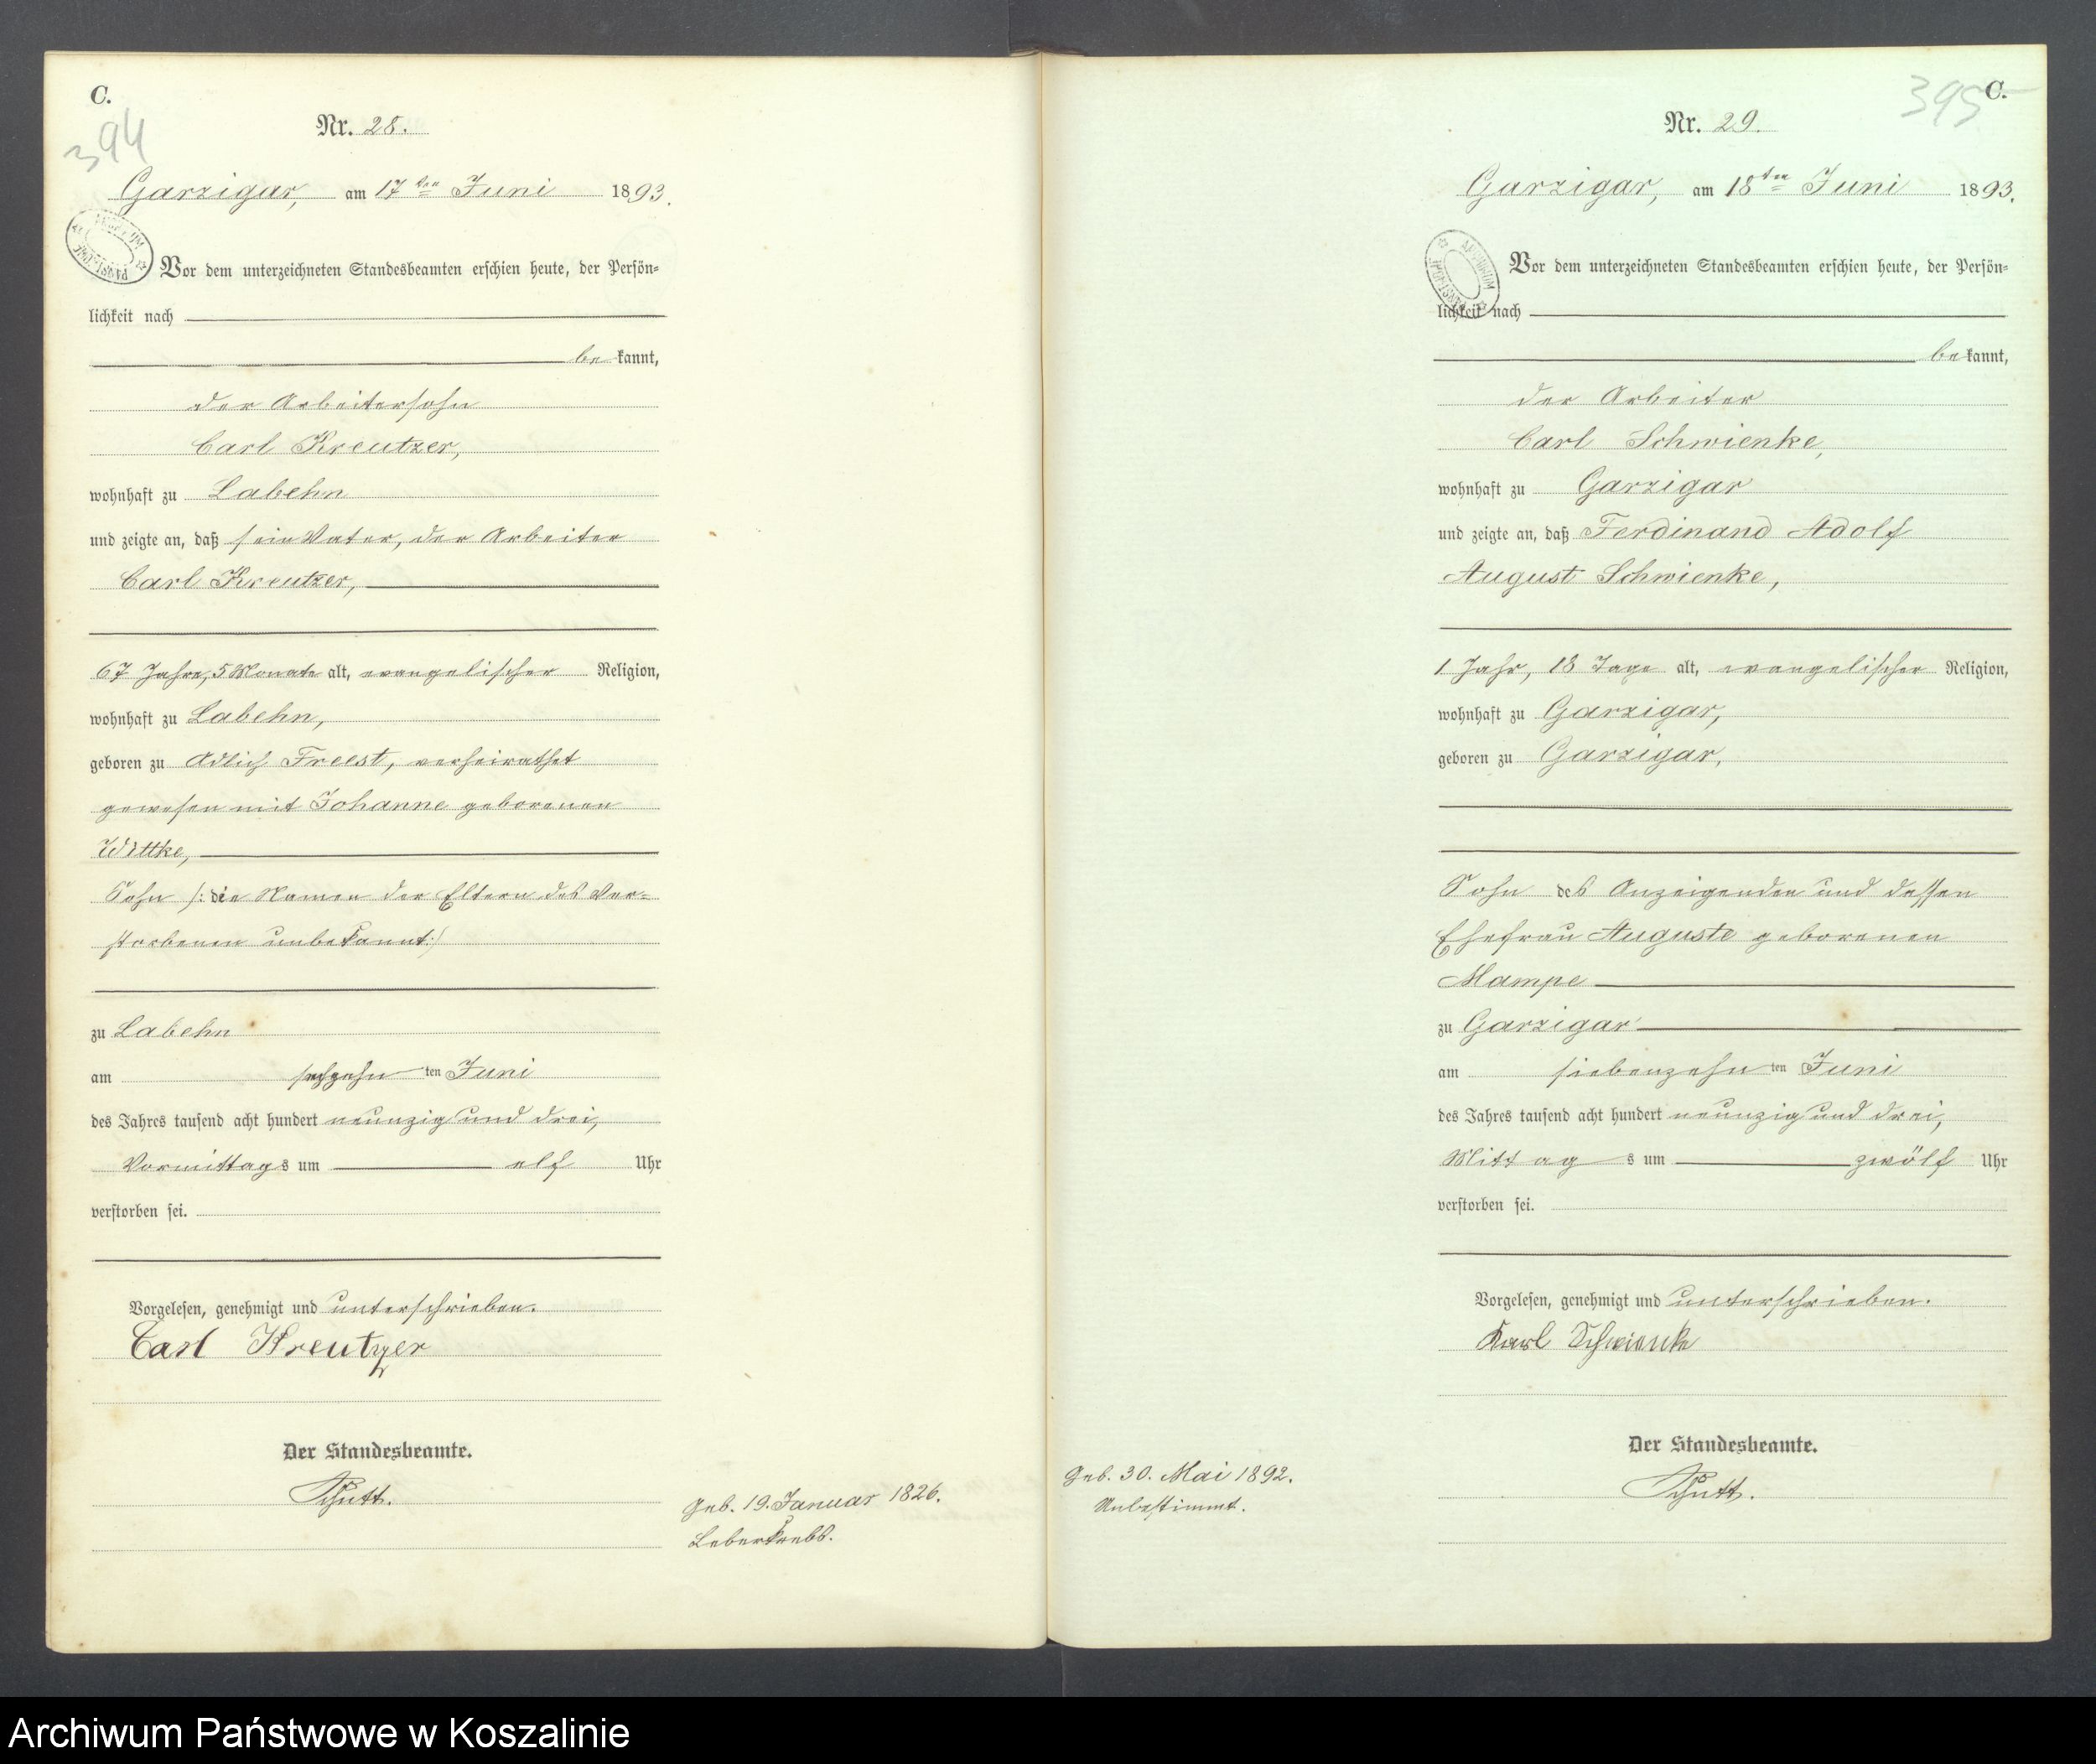 C.
394
Nr. 28.
Garzigar, am 17ten Juni 1893.
Vor dem unterzeichneten Standesbeamten erschien heute, der Persön=
lichkeit nach
be kannt,
der Arbeitersohn
Carl Kreutzer,
wohnhaft zu Labehn
und zeigte an, daß sein Vater, der Arbeiter
Carl Kreutzer,
67 Jahre, 5 Monate alt, evangelischer Religion,
wohnhaft zu Labehn,
geboren zu Adlich Freest, verheirathet
gewesen mit Johanne geborenen
Wittke,
Sohn /: die Namen der Eltern des Ver=
storbenen unbekannt :/
zu Labehn
am sechzehn ten Juni
des Jahres tausend acht hundert neunzig und drei,
Vormittags um elf Uhr
verstorben sei.
Vorgelesen, genehmigt und unterschrieben.
Carl Kreutzer
Der Standesbeamte.
Schutt.
Geb. 19. Januar 1826.
Leberkrebs.
C.
395
Nr. 29.
Garzigar, am 18ten Juni 1893.
ARCHIWUM PAŃSTWOWE
Vor dem unterzeichneten Standesbeamten erschien heute, der Persön=
lichkeit nach
be kannt,
der Arbeiter
Carl Schwienke,
wohnhaft zu Garzigar
und zeigte an, daß Ferdinand Adolf
August Schwienke,
1 Jahr, 18 Tage alt, evangelischer Religion,
wohnhaft zu Garzigar,
geboren zu Garzigar,
Sohn des Anzeigenden und dessen
Ehefrau Auguste geborenen
Mampe
zu Garzigar
am siebenzehn ten Juni
des Jahres tausend acht hundert neunzig und drei,
Mittag s um zwölf Uhr
verstorben sei.
Vorgelesen, genehmigt und unterschrieben.
Karl Schwienke
Der Standesbeamte.
Schutt.
Geb. 30. Mai 1892.
Unbestimmt.
Archiwum Państwowe w Koszalinie